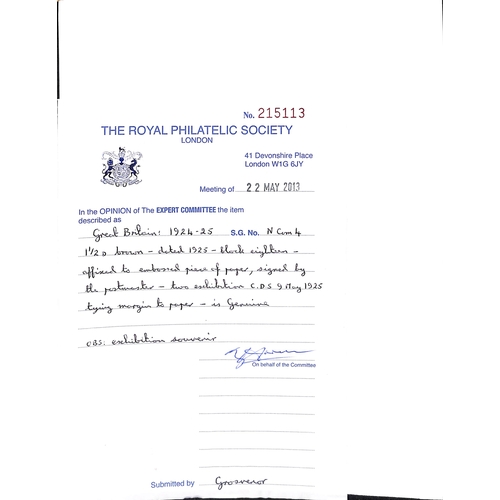 No. 215113
THE ROYAL PHILATELIC SOCIETY
LONDON
41 Devonshire Place
London W1G 6JY
Meeting of 22 MAY 2013
In the OPINION of The EXPERT COMMITTEE the item
described as
Great Britain: 1924-25 S.G. No. N Com 4
1½D brown - dated 1925 - block eighteen -
affixed to embossed piece of paper, signed by
the postmaster - two exhibition C.D.S 9 May 1925
tying margin to paper - is Genuine
OBS: exhibition souvenir
On behalf of the Committee
Submitted by Grosvenor